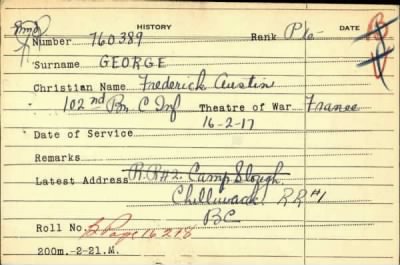 HISTORY
Number 760389 Rank Pte DATE
Surname GEORGE
Christian Name Frederick Austin
102nd Bn C Inf Theatre of War France
16-2-17
Date of Service
Remarks
Latest Address R.R#2. Camp Slough,
Chilliwack, RR#1
BC
Roll No. B Page 16218
200m.-2-21.M.